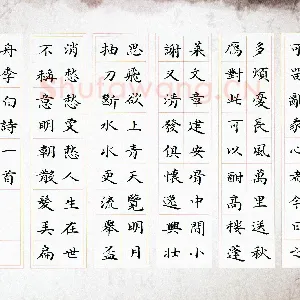 可留亂我心者今日之
多煩憂長風萬里送秋
鴈對此可以酣高樓蓬
萊文章建安骨中間小
謝又清發俱懷逸興壯
思飛欲上青天覽明月
抽刀斷水水更流舉盃
消愁愁更愁人生在世
不稱意明朝散髮弄扁
舟李白詩一首